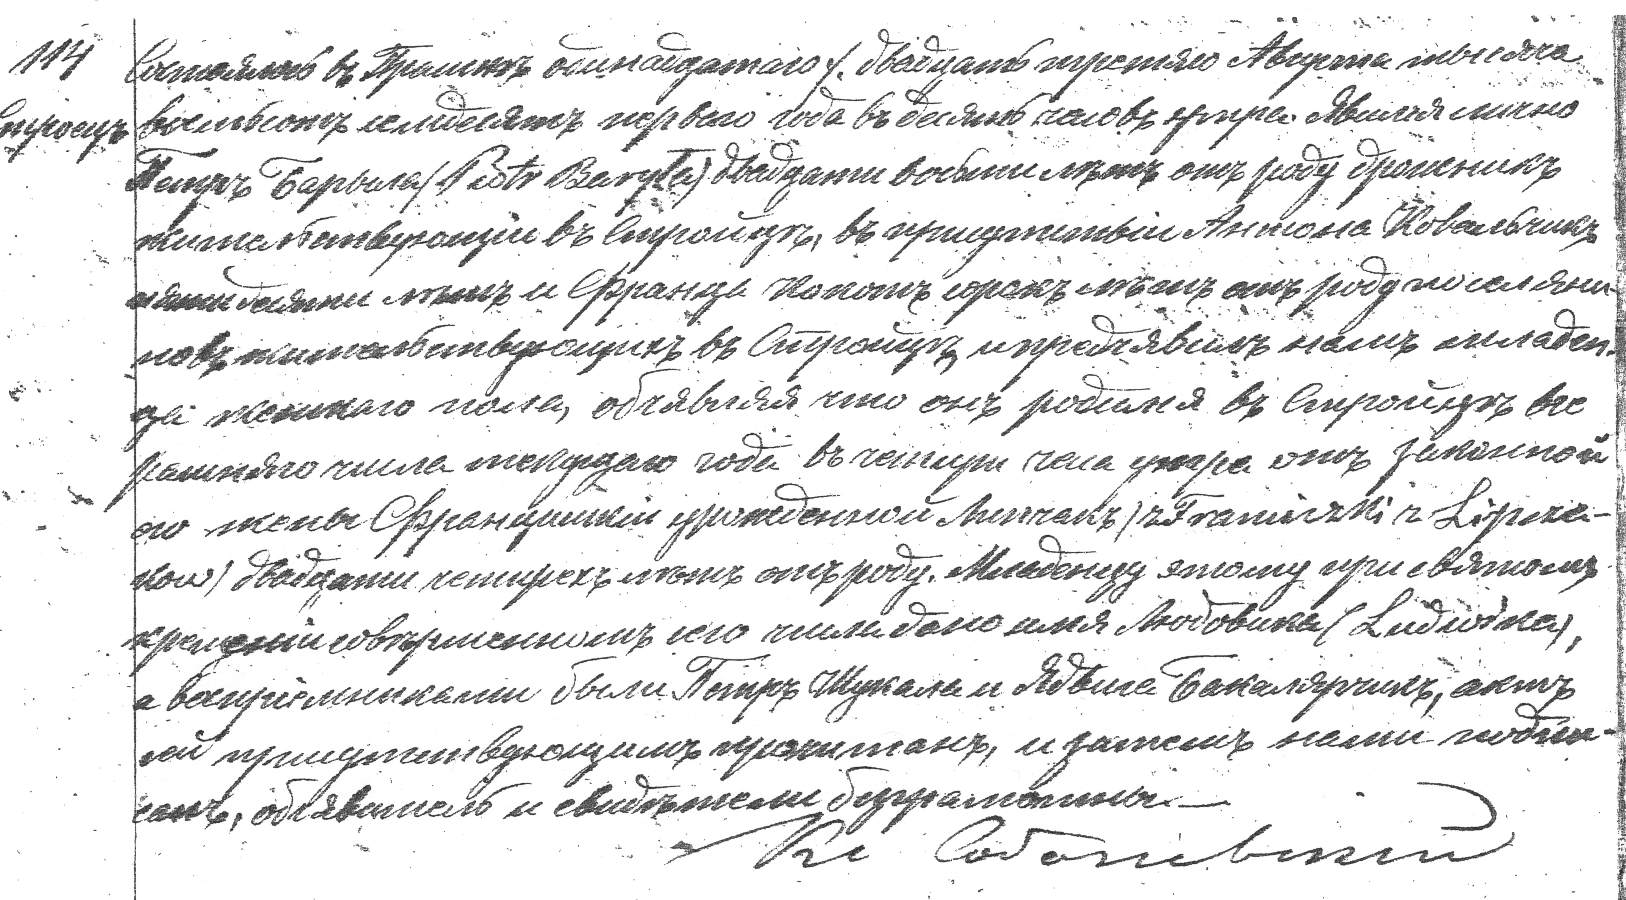 114
Стройцъ
Состоялось въ одинадцатаго /. двадцать третяго Августа тысяча
восемьсотъ семдесятъ первого года въ десять часовъ утра. Явился лично
Петръ Барыла (Piotr Baryła) двадцати восьми лѣтъ отъ роду дроженикъ
жительствующій въ Стройцѣ, въ присутствіи Антона Ковальчикъ
лѣтъ и Франца Копотъ сорокъ лѣтъ отъ роду поселяни-
новъ жительствующихъ въ Стройцѣ, и предъявилъ намъ младен-
ца женскаго пола, объявляя что онъ родился въ Стройцѣ
числа текущаго года въ четыри часа утра отъ законной
его жены Францишки урожденной Липчакъ) z Franciszki z Lipcza-
kow) двадцати четырехъ лѣтъ отъ роду. Младенцу этому при святомъ
крещеніи совершенномъ сего числа дано имя Людовика (Ludwika),
а воспріемниками были Петръ Шукала и Ядвига Бакалярчикъ, актъ
сей присутствующимъ прочитанъ, и затемъ нами подпи-
санъ, объявитель и свидѣтели безграмотны. —
Кс Соболевскій